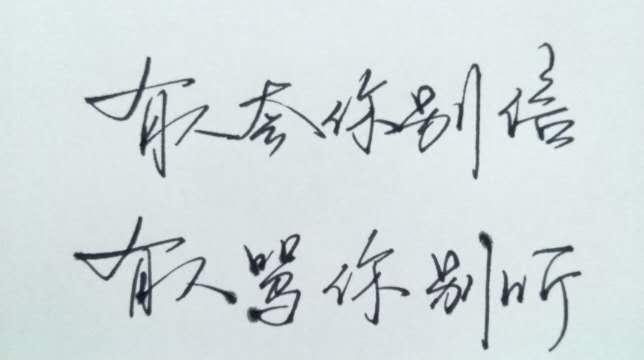 有人夸你别信
有人骂你别听